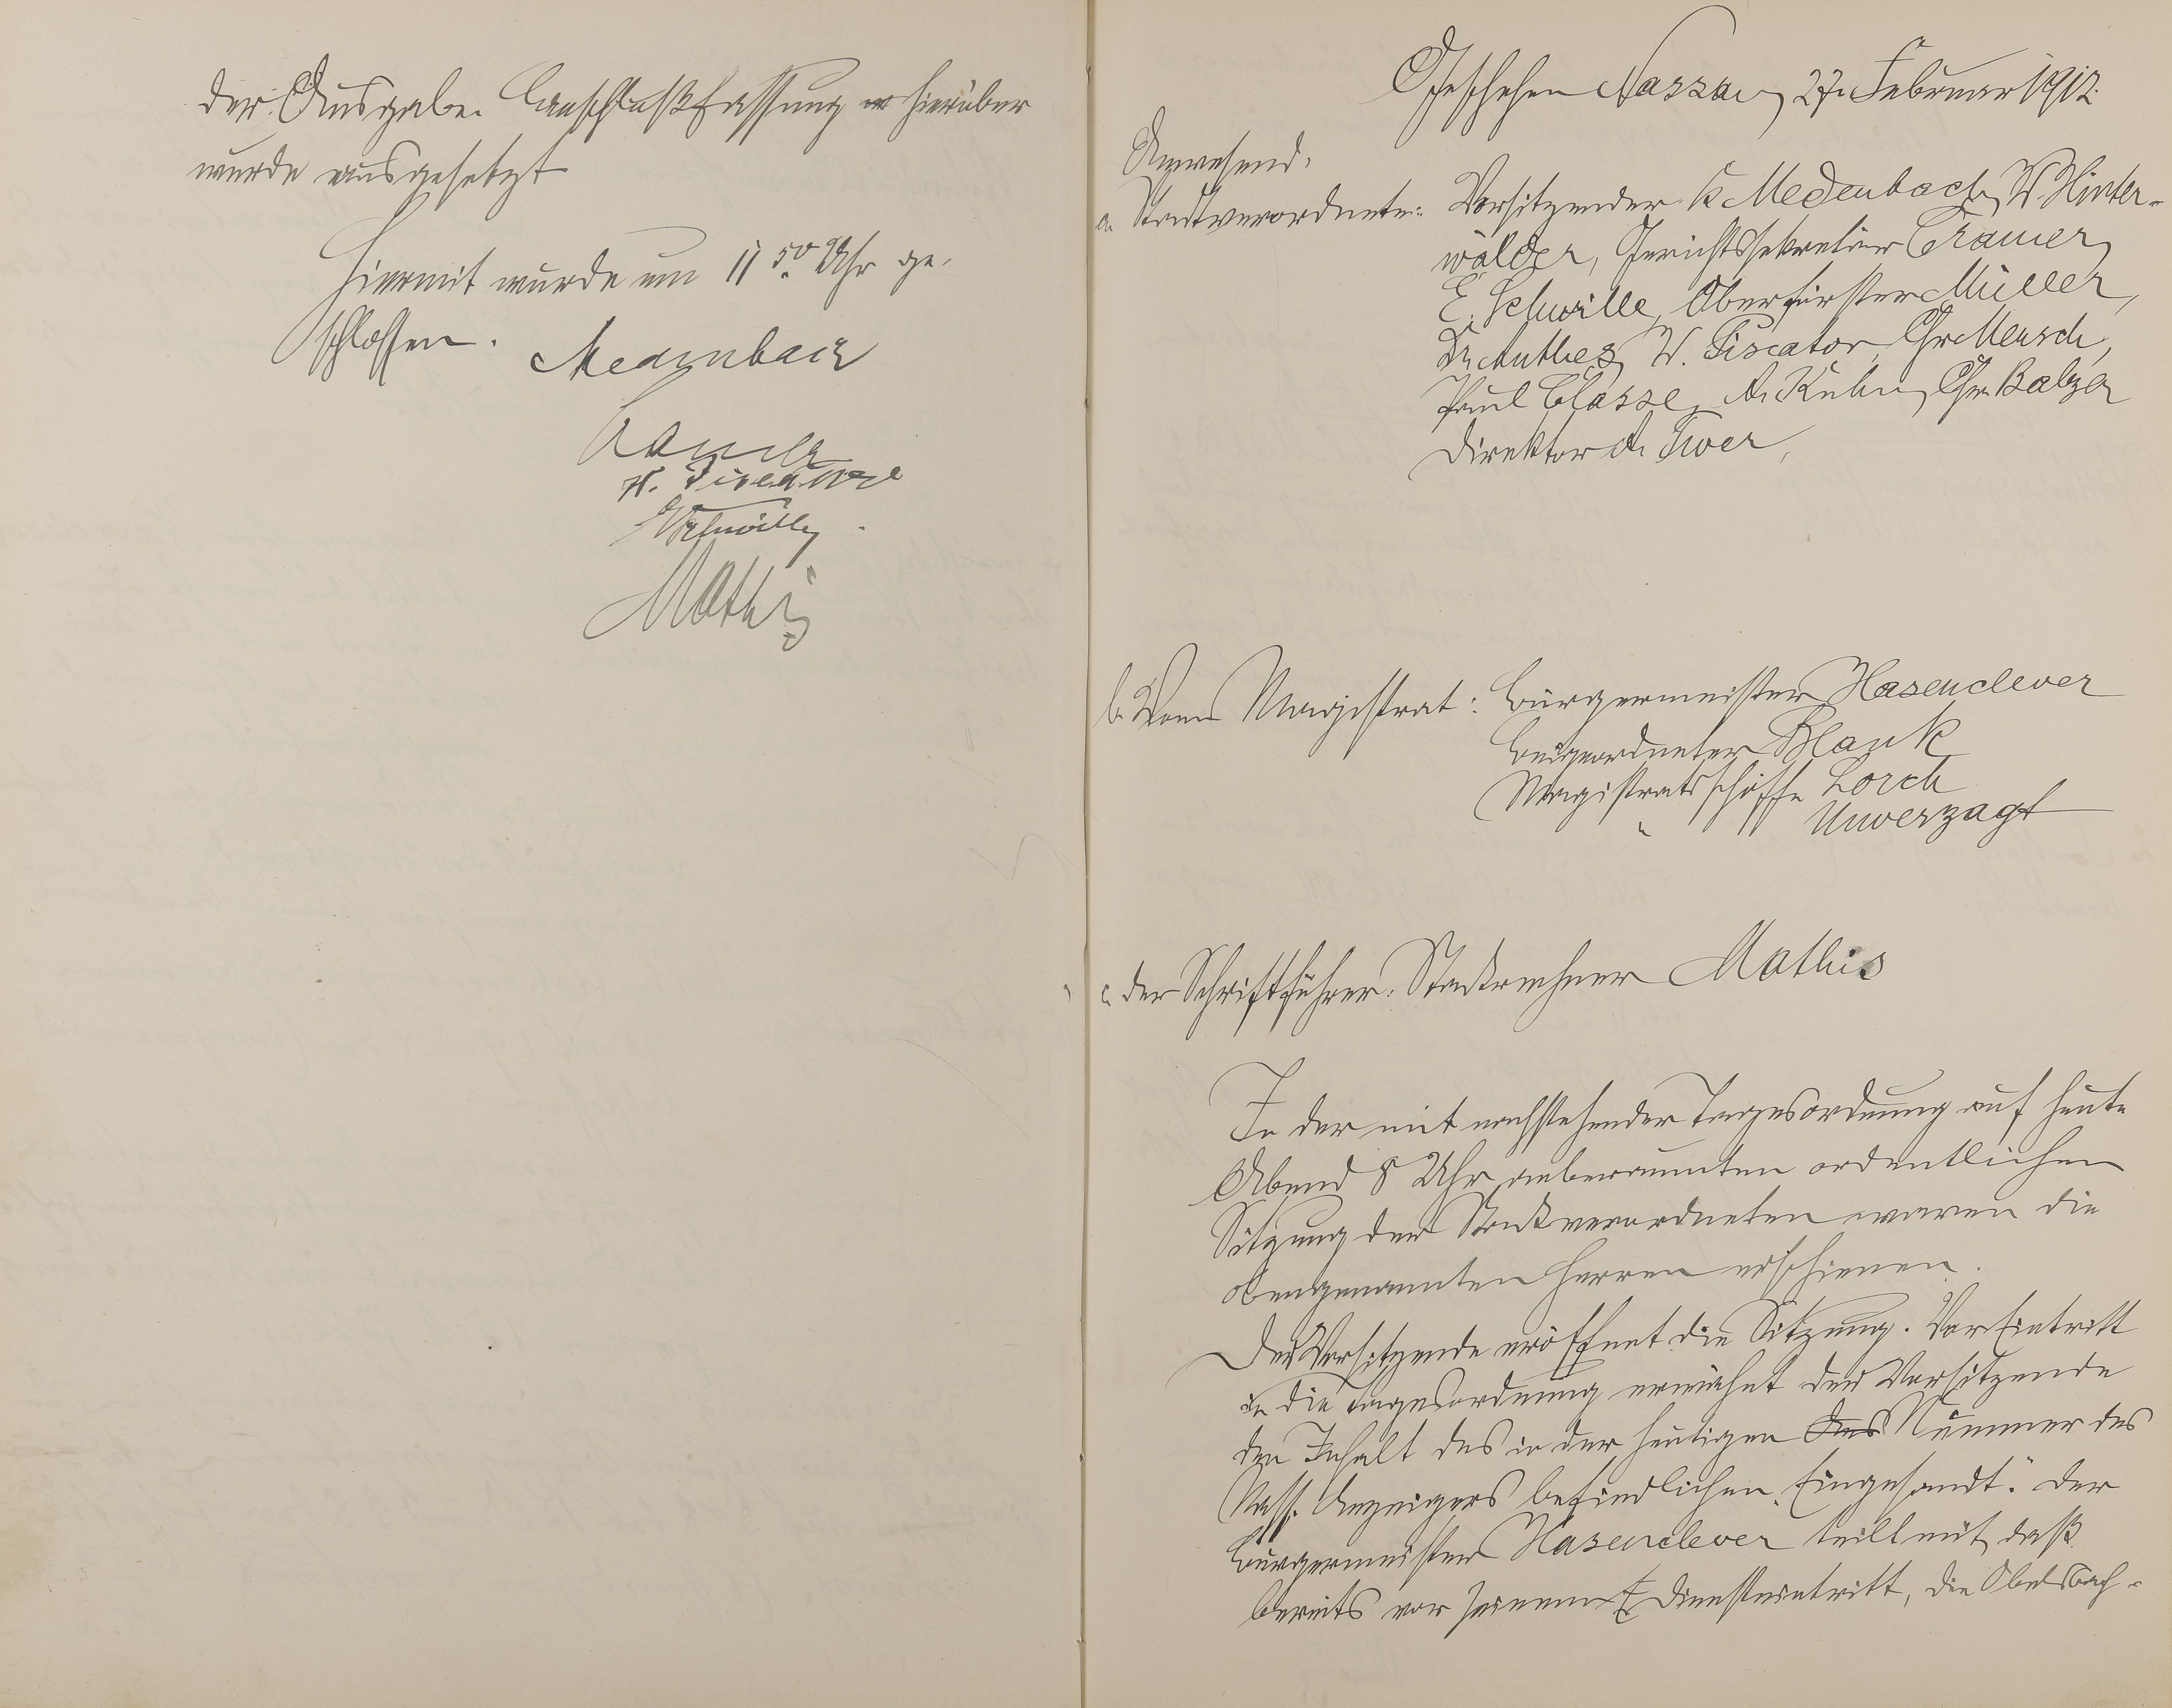 der Ausgabe. Beschlußfassung hierüber
wurde ausgesetzt
Hiermit wurde um 11 50 Uhr ge-
schlossen.
Medenbach
Cramer
W. Piscator
E Schwille
Mathis
Geschehen Nassau, 27. Februar 1912.
Anwesend.
a. Stadtverordnete: Vorsitzender K Medenbach, W Hinter-
wälder, Gerichtssekretär Cramer,
E. Schwille, Oberförster Müller,
Dr Anthes, W. Piscator, Chr Mensch,
Paul Classe, A. Kuhn, Chr. Balzer
Direktor A. Twer,
b. Vom Magistrat: Bürgermeister Hasenclever
Beigeordneter Blank
Magistratsschöffe Lorch
" Unverzagt
c. der Schriftführer: Stadtrechner Mathis
In der mit nachstehender Tagesordnung auf heute
Abend 8 Uhr anberaumten ordentlichen
Sitzung der Stadtverordneten waren die
obengenannten Herren erschienen.
Der Vorsitzende eröffnet die Sitzung. Vor Eintritt
in die Tagesordnung erwähnt der Vorsitzende
den Inhalt des in der heutigen Nummer des
Nass. Anzeigers befindlichen „Eingesandt." Der
Bürgermeister Hasenclever teilt mit, daß
bereits vor seinem Diensteintritt, die